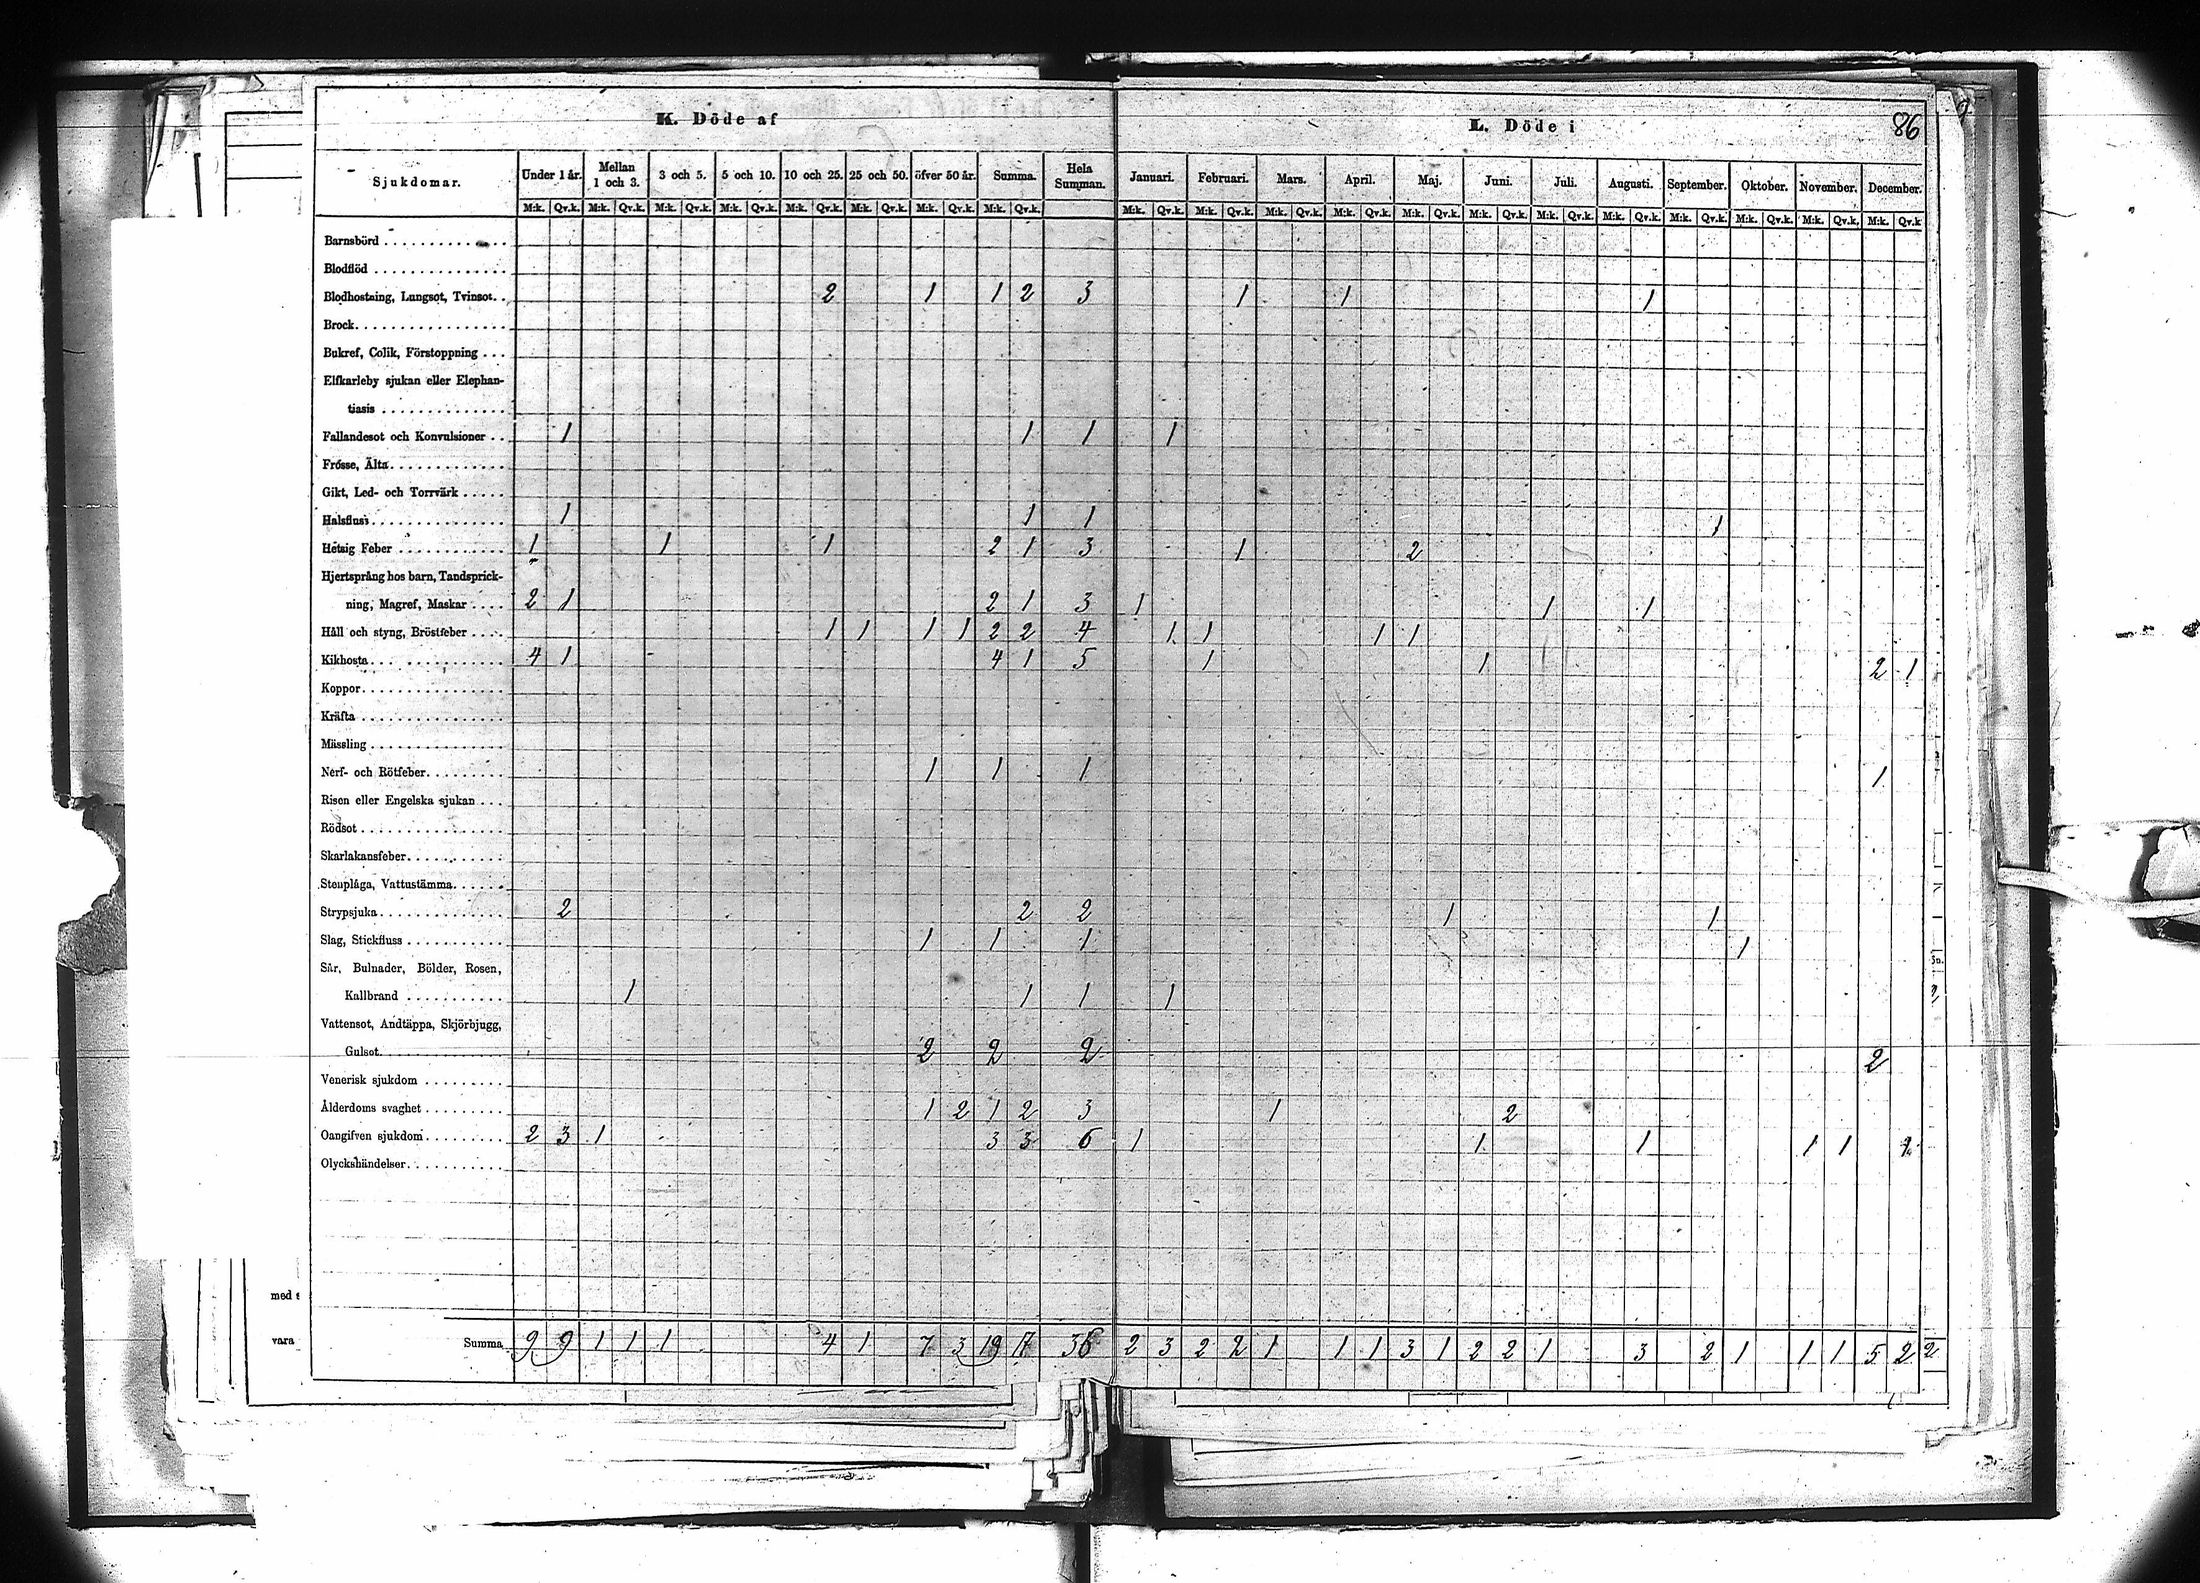 K. Döde af
L. Döde i
86
Sjukdomar. Under 1 år. Mellan 1 och 3. 3 och 5. 5 och 10. 10 och 25. 25 och 50. öfver 50 år. Summa. Hela Summan. Januari. Februari. Mars. April. Maj. Juni. Juli. Augusti. September. Oktober. November. December.
M:k. Qv.k. M:k. Qv.k. M:k. Qv.k. M:k. Qv.k. M:k. Qv.k. M:k. Qv.k. M:k. Qv.k. M:k. Qv.k. M:k. Qv.k. M:k. Qv.k. M:k. Qv.k. M:k. Qv.k. M:k. Qv.k. M:k. Qv.k. M:k. Qv.k. M:k. Qv.k. M:k. Qv.k. M:k. Qv.k. M:k. Qv.k. M:k. Qv.k
Barnsbörd
Blodflöd
Blodhostning, Lungsot, Tvinsot. 2 1 1 2 3 1 1 1
Brock
Bukref, Colik, Förstoppning
Elfkarleby sjukan eller Elephan-
tiasis
Fallandesot och Konvulsioner 1 1 1 1
Frosse, Älta
Gikt, Led- och Torrvärk
Halsfluss 1 1 1 1
Hetsig Feber 1 1 1 2 1 3 1 2
Hjertsprång hos barn, Tandsprick-
ning, Magref, Maskar 2 1 2 1 3 1 1 1
Håll och styng, Bröstfeber 1 1 1 1 2 2 4 1 1 1 1
Kikhosta 4 1 4 1 5 1 1 2 1
Koppor
Kräfta
Mässling
Nerf- och Rötfeber 1 1 1 1
Risen eller Engelska sjukan
Rödsot
Skarlakansfeber
Stenplåga, Vattustämma
Strypsjuka 2 2 2 1 1
Slag, Stickfluss 1 1 1 1
Sår, Bulnader, Bölder, Rosen,
Kallbrand 1 1 1 1
Vattensot, Andtäppa, Skjörbjugg,
Gulsot 2 2 2 2
Venerisk sjukdom
Ålderdoms svaghet 1 2 1 2 3 1 2
Oangifven sjukdom 2 3 1 3 3 6 1 1 1 1 1 1
Olyckshändelser
med s
vara
Summa 9 9 1 1 1 4 1 7 3 19 17 36 2 3 2 2 1 1 1 3 1 2 2 1 3 2 1 1 1 5 2 2